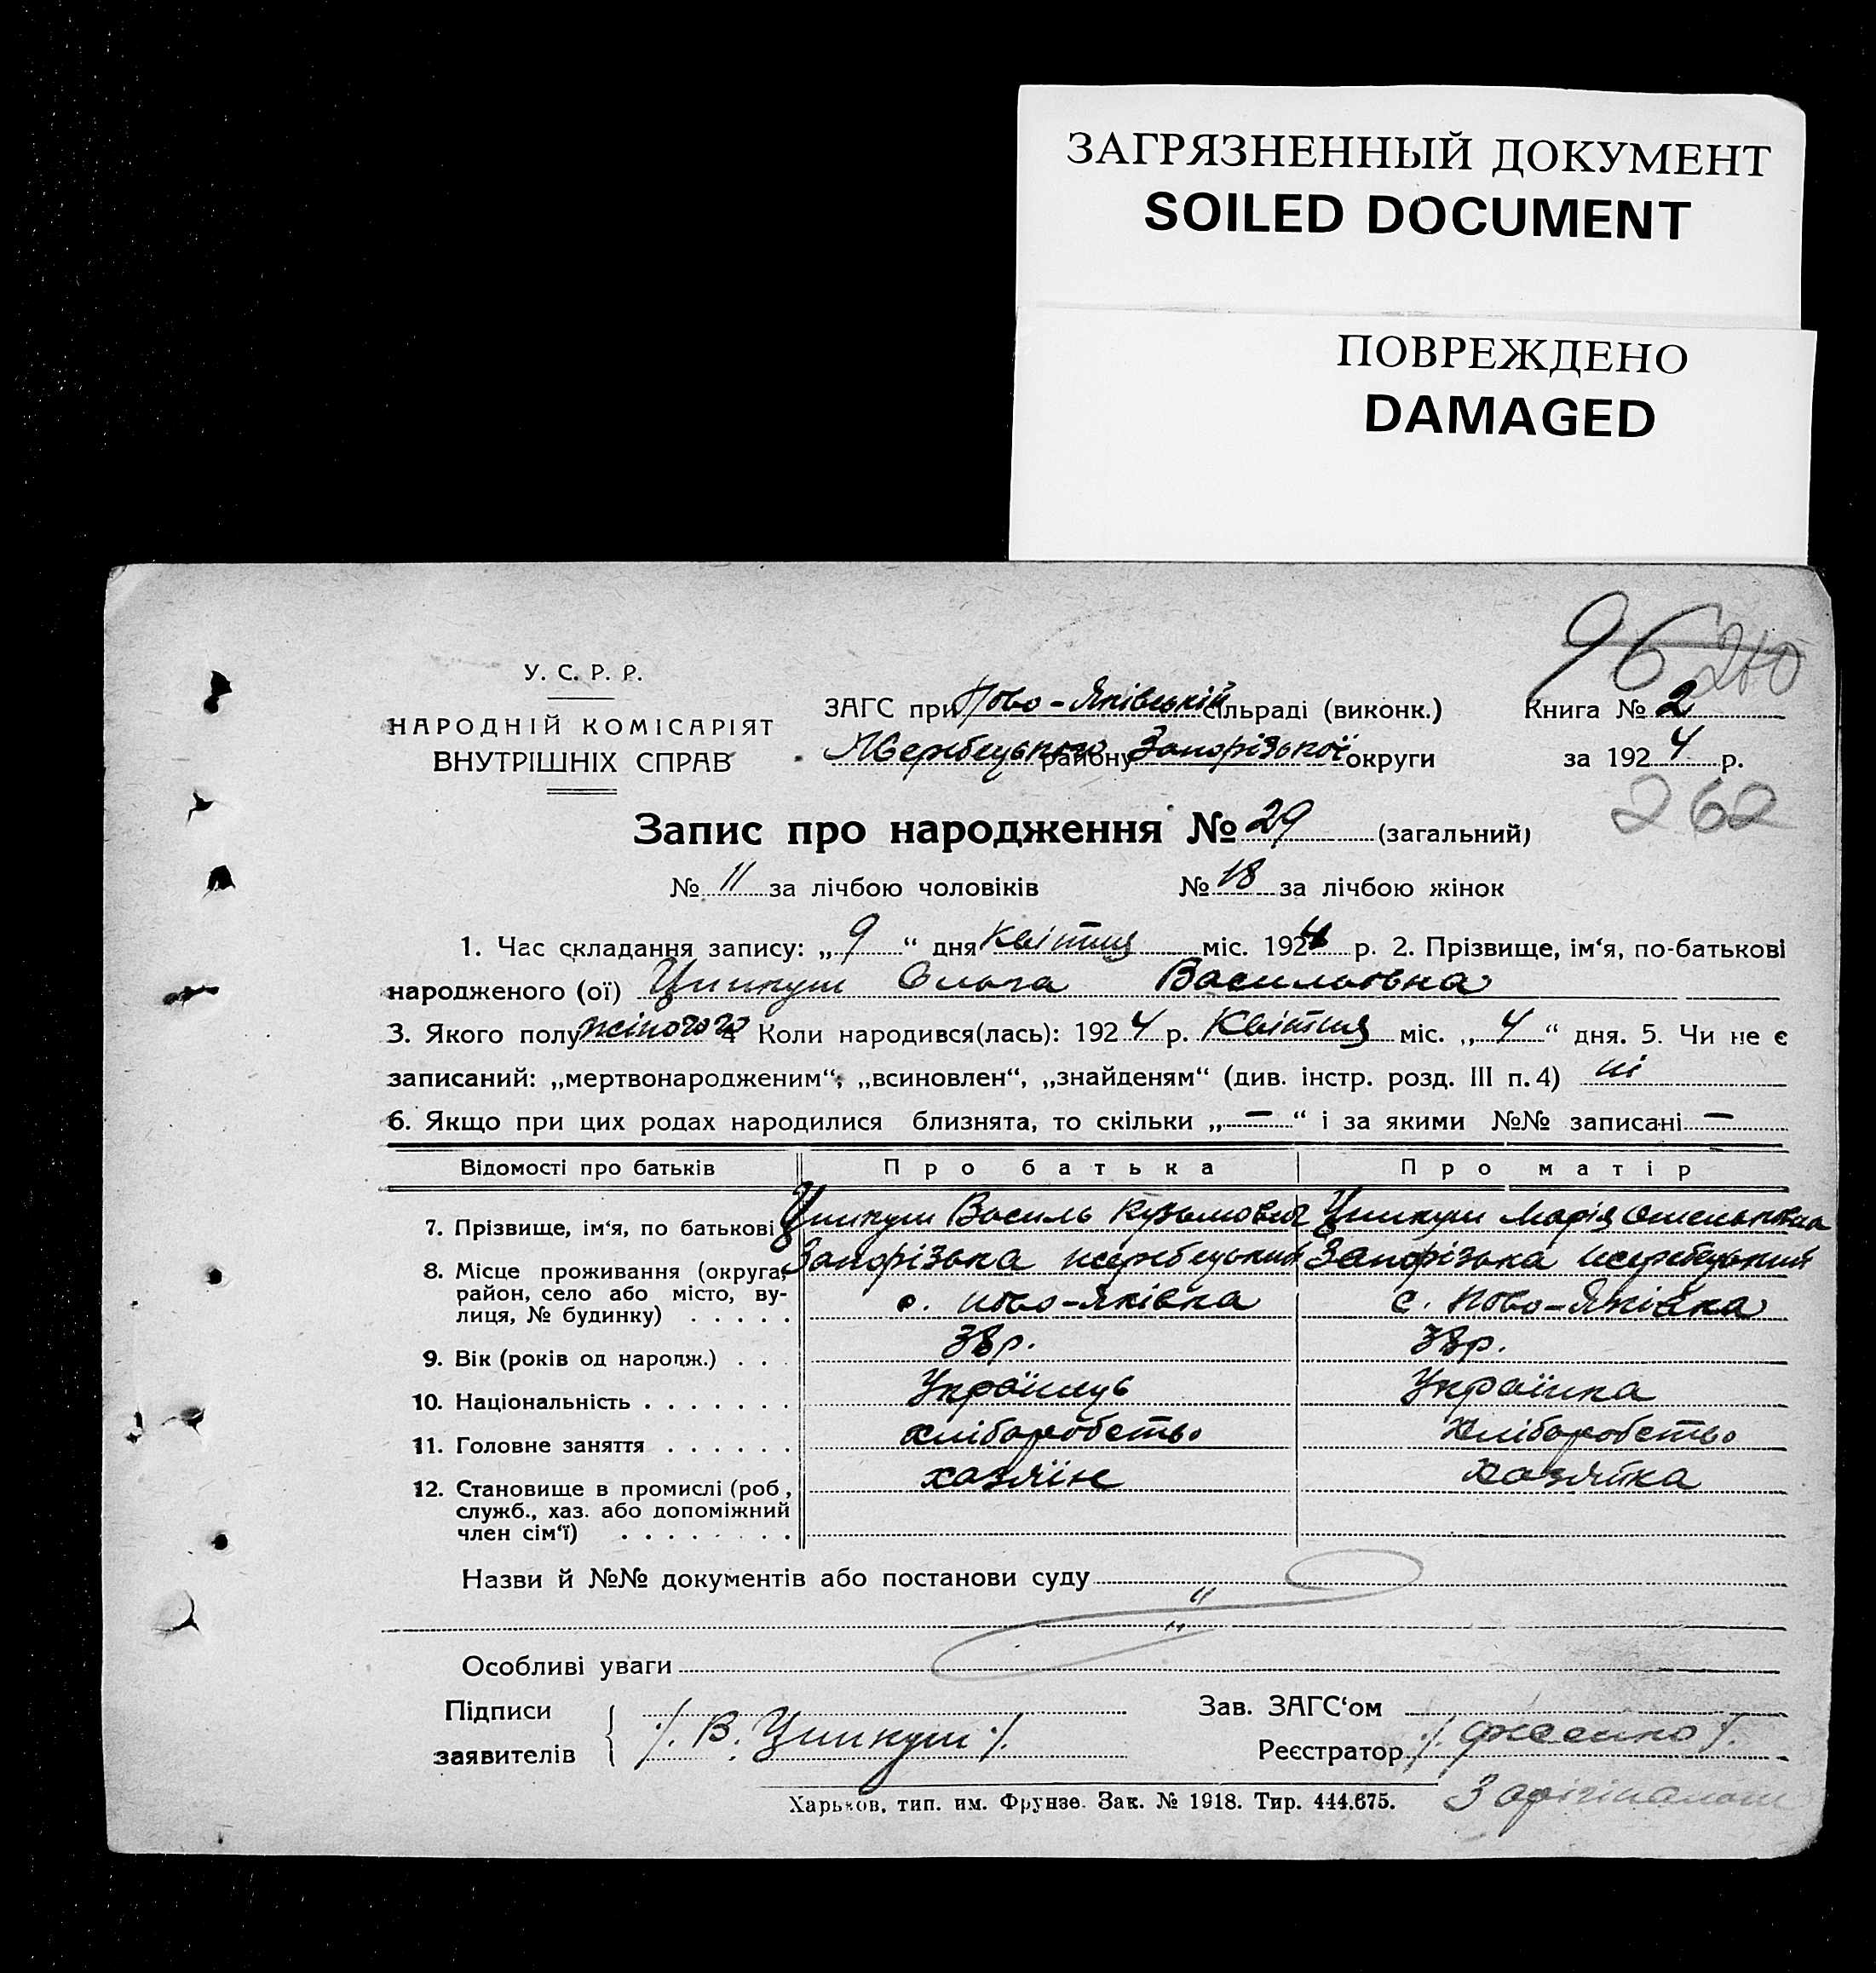 ЗАГРЯЗНЕННЫЙ ДОКУМЕНТ
SOILED DOCUMENT
ПОВРЕЖДЕНО
DAMAGED
96 210
У. С. Р. Р.
НАРОДНІЙ КОМІСАРІЯТ
ВНУТРІШНІХ СПРАВ
ЗАГС при Ново-Яківській сільраді (виконк.) Книга № 2
Жеребецького району Запорізької округи за 1924 р.
262
Запис про народження № 29 (загальний)
№ 11 за лічбою чоловіків № 18 за лічбою жінок
1. Час складання запису: „ 9 “ дня Квітня міс. 1924 р. 2. Прізвище, ім‘я, по-батькові
народженого (ої) Ципкуш Ольга Васильовна
3. Якого полу жіночого 4 Коли народився(лась): 1924 р. Квітня міс. „ 4 “ дня. 5. Чи не є
записаний: „мертвонародженим“, „всиновлен“, „знайденям“ (див. інстр. розд. III п. 4) ні
6. Якщо при цих родах народилися близнята, то скільки „ — “ і за якими №№ записані —
Відомості про батьків Про батька Про матір
7. Прізвище, ім‘я, по батькові Ципкуш Василь Кузьмович Ципкуш Марія
8. Місце проживання (округа, Запорізька жеребецький Запорізька жеребецький
район, село або місто, ву-
лиця, № будинку) . . . . . с. Ново-Яківка с. Ново-Яківка
9. Вік (років од народж.) . . . 38 р. 38 р.
10. Національність . . . . . . . Українець Українка
11. Головне заняття . . . . . . хліборобство Хліборобство
12. Становище в промислі (роб, хазяїн хазяйка
служб., хаз. або допоміжний
член сім‘ї) . . . . . . . .
Назви й №№ документів або постанови суду
"
"
Особливі уваги
Підписи Зав. ЗАГС‘ом
заявителів /. В. Ципкуш ./. Реєстратор
Харьков, тип. им. Фрунзе. Зак. № 1918. Тир. 444.675.
З орігіналом